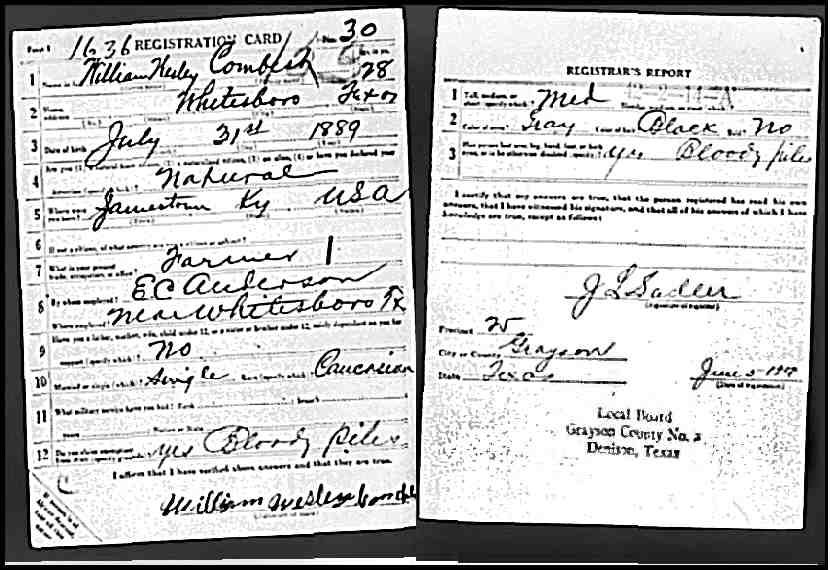 Form 1 1636 REGISTRATION CARD No. 30
1 Name in full William Wesley Combest Age, in yrs. 28
2 Home address Whitesboro Texas
3 Date of birth July 31st 1889
Are you (1) a natural-born citizen, (2) a naturalized citizen, (3) an alien, (4) or have you declared your
4 intention (specify which)? Natural
5 Where were you born? Jamestown Ky USA
6 If not a citizen, of what country are you a citizen or subject?
7 What is your present trade, occupation, or office? Farmer 1
8 By whom employed? E C Anderson
Where employed? Near Whitesboro Tx
Have you a father, mother, wife, child under 12, or a sister or brother under 12, solely dependent on you for
9 support (specify which)? No
10 Married or single (which)? Single Race (specify which)? Caucasian
11 What military service have you had? Rank branch
years Nation or State
12 Do you claim exemption from draft (specify grounds)? yes Bloody Piles
I affirm that I have verified above answers and that they are true.
William Wesley Combest
REGISTRAR'S REPORT
1 Tall, medium, or short (specify which)? Med
2 Color of eyes? Gray Color of hair? Black Bald? No
3 Has person lost arm, leg, hand, foot, or both eyes, or is he otherwise disabled (specify)? yes Bloody piles
I certify that my answers are true, that the person registered has read his own
answers, that I have witnessed his signature, and that all of his answers of which I have
knowledge are true, except as follows:
J L Sadler
(Signature of registrar)
Precinct W
City or County Grayson
State Texas June 5-1917
(Date of registration)
Local Board
Grayson County No. 2
Denison, Texas